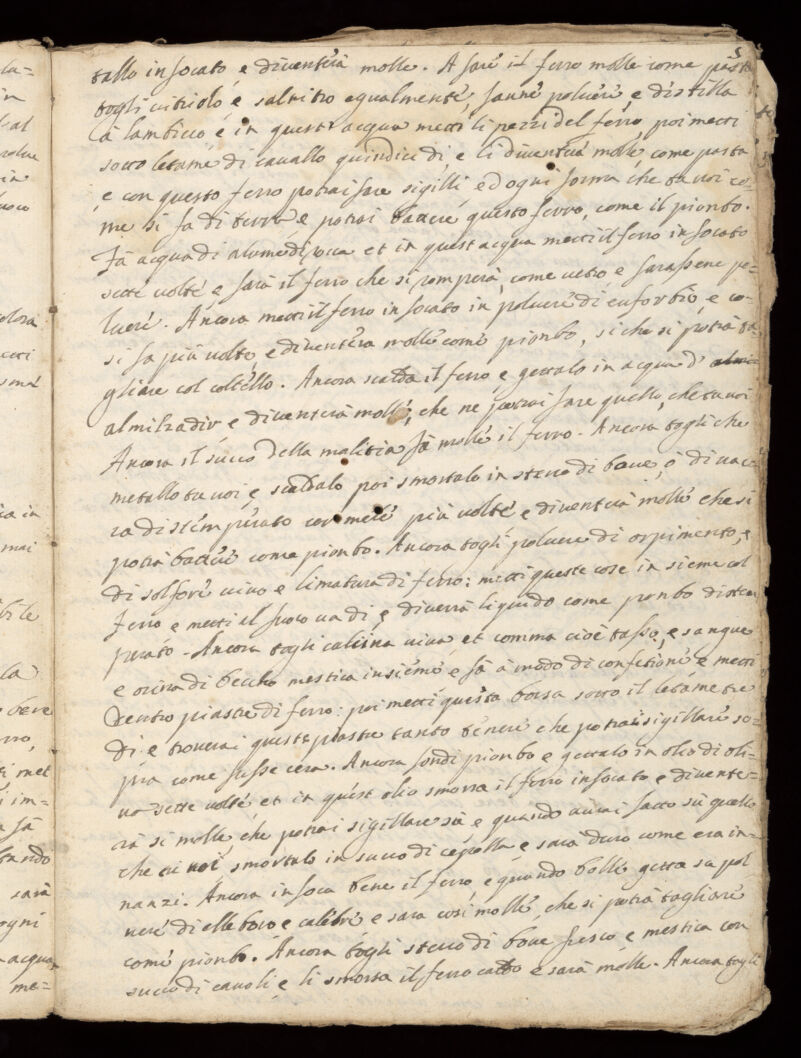 5
tallo infocato, e diventerà molle. A fare il ferro molle come pasta
togli vitriolo, e salnitro egualmente, fanne polvere, e distilla
a lambicco e in quest'acqua metti li pezzi del ferro, poi metti
sotto letame di cavallo quindici dì e li diventerà molle come pasta
e con questo ferro potrai fare sigilli, ed ogni forma che tu voi co=
me si fa di terra e potrai battere questo ferro, come il piombo.
Fà acqua di alume di roca et in quest'acqua metti il ferro infocato
sette volte, e farà il ferro che si romperà, come vetro e farassene po=
luere. Ancora metti il ferro infocato in polvere di euforbio, e co=
si fa più volte, e diventerà molle come piombo, si che si potrà ta=
gliare col coltello. Ancora scalda il ferro, e gettalo in acqua d'
almizadir e diventerà molle, che ne potrai fare quello, che tu voi
Ancora il succo della malitia fà molle il ferro. Ancora togli che
metallo tu voi, e scaldalo poi smortalo in sterco di bove, ò di vac=
ca distemperato con mele più volte, e diventerà molle che si
potrà battere come piombo. Ancora togli polvere di orpimento, e
di solfore vivo e limatura di ferro: metti queste cose insieme col
ferro e metti il fuoco va di, e diverrà liquido come piombo distem
perato. Ancora togli calcina viva, et comma cioè tasso, e sangue
e orina di becco mestica insieme, e fà à modo di confetione e metti
dentro piastre di ferro: poi metti questa borsa sotto il letame tre
di. e troverai queste piastre tanto tenere che potrai sigillare so=
pra come fusse cera. Ancora fondi piombo e gettalo in olio di oli=
va sette volte et in quest'olio smorza il ferro infocato e divente=
rà si molle, che potrai sigillare sù e quando avrai fatto sù quello
che tu voi, smortalo in succo di cepolla e sarà duro come era in=
nanzi. Ancora infoca bene il ferro, e quando bolle getta su pol
vere di elleboro e calibre e sara cosi molle, che si potrà tagliare
come piombo. Ancora togli sterco di bove fresco e mestica con
succo di cavoli, e li smorza il ferro caldo e sarà molle. Ancora togli